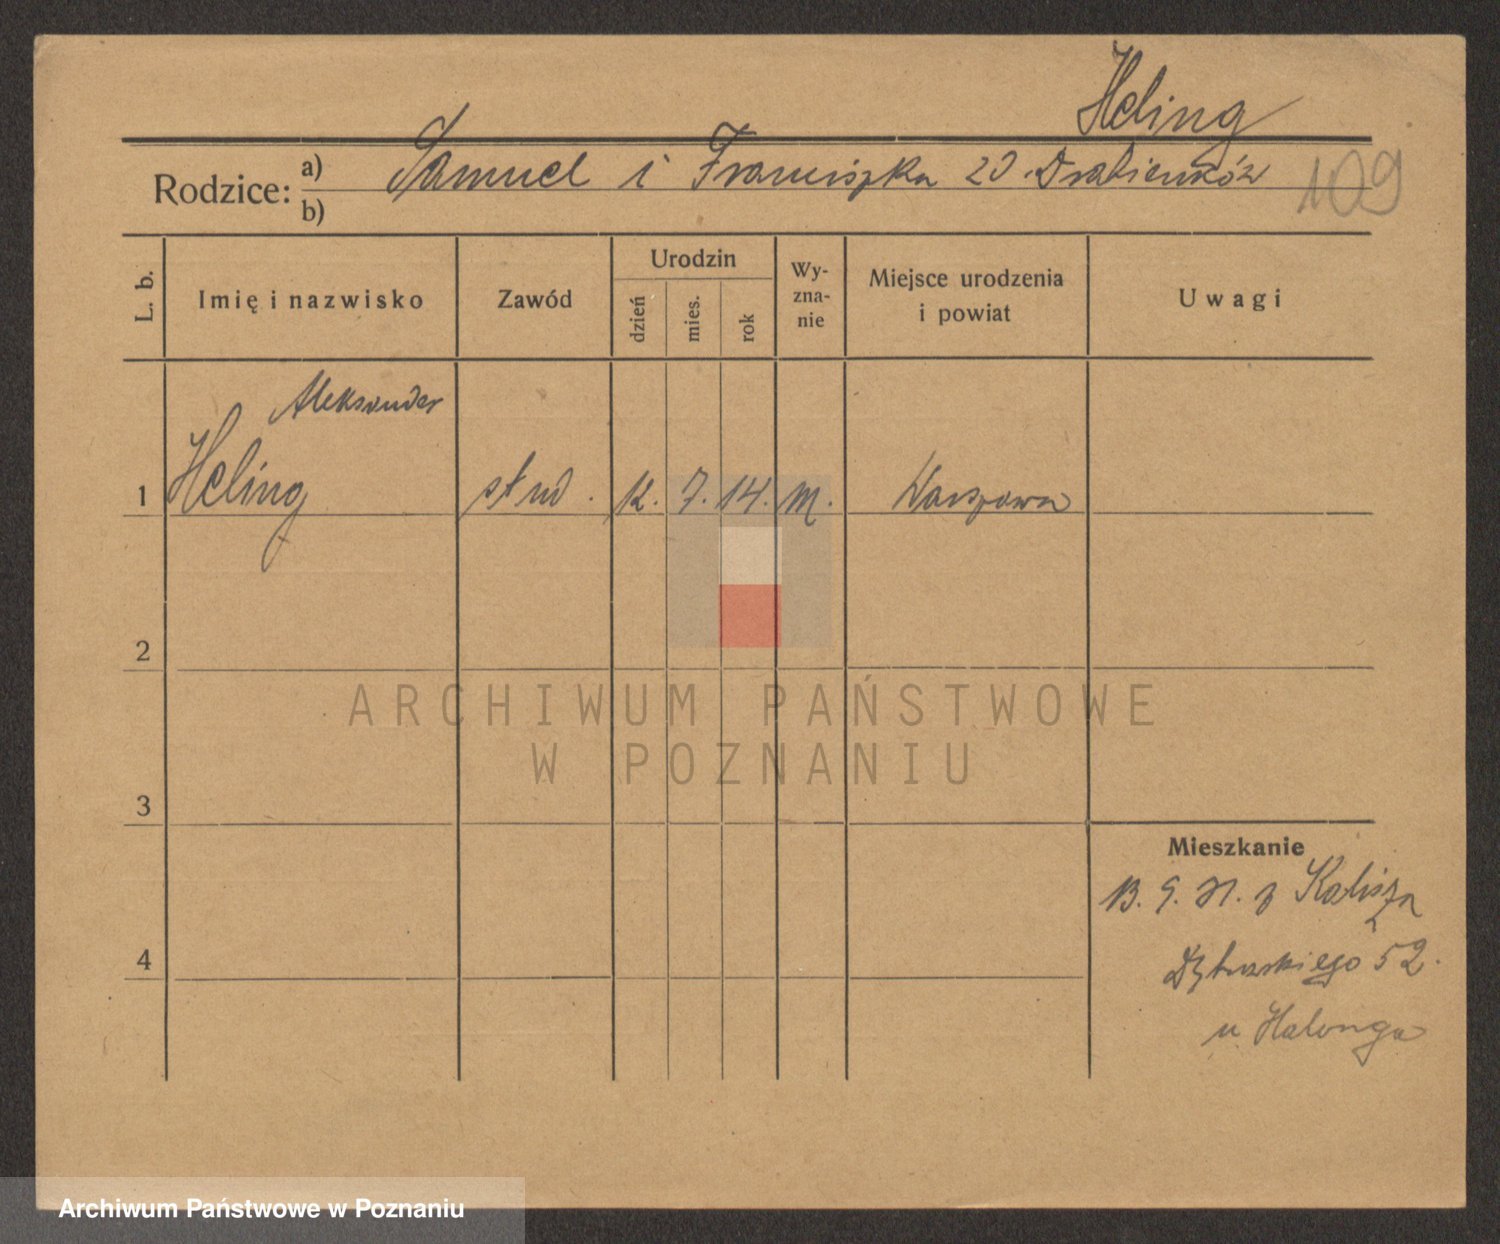 Heling
Rodzice: a) Samuel i Franciszka z d. Drabienków
b)
109
L. b.
Imię i nazwisko
Zawód
Urodzin
dzień
mies.
rok
Wy-
zna-
nie
Miejsce urodzenia
i powiat
Uwagi
Aleksander
1 Heling stud. 12. 7. 14. m. Warszawa
2
3
4
Mieszkanie
z Kalisza
52.
u
ARCHIWUM PAŃSTWOWE
W POZNANIU
Archiwum Państwowe w Poznaniu